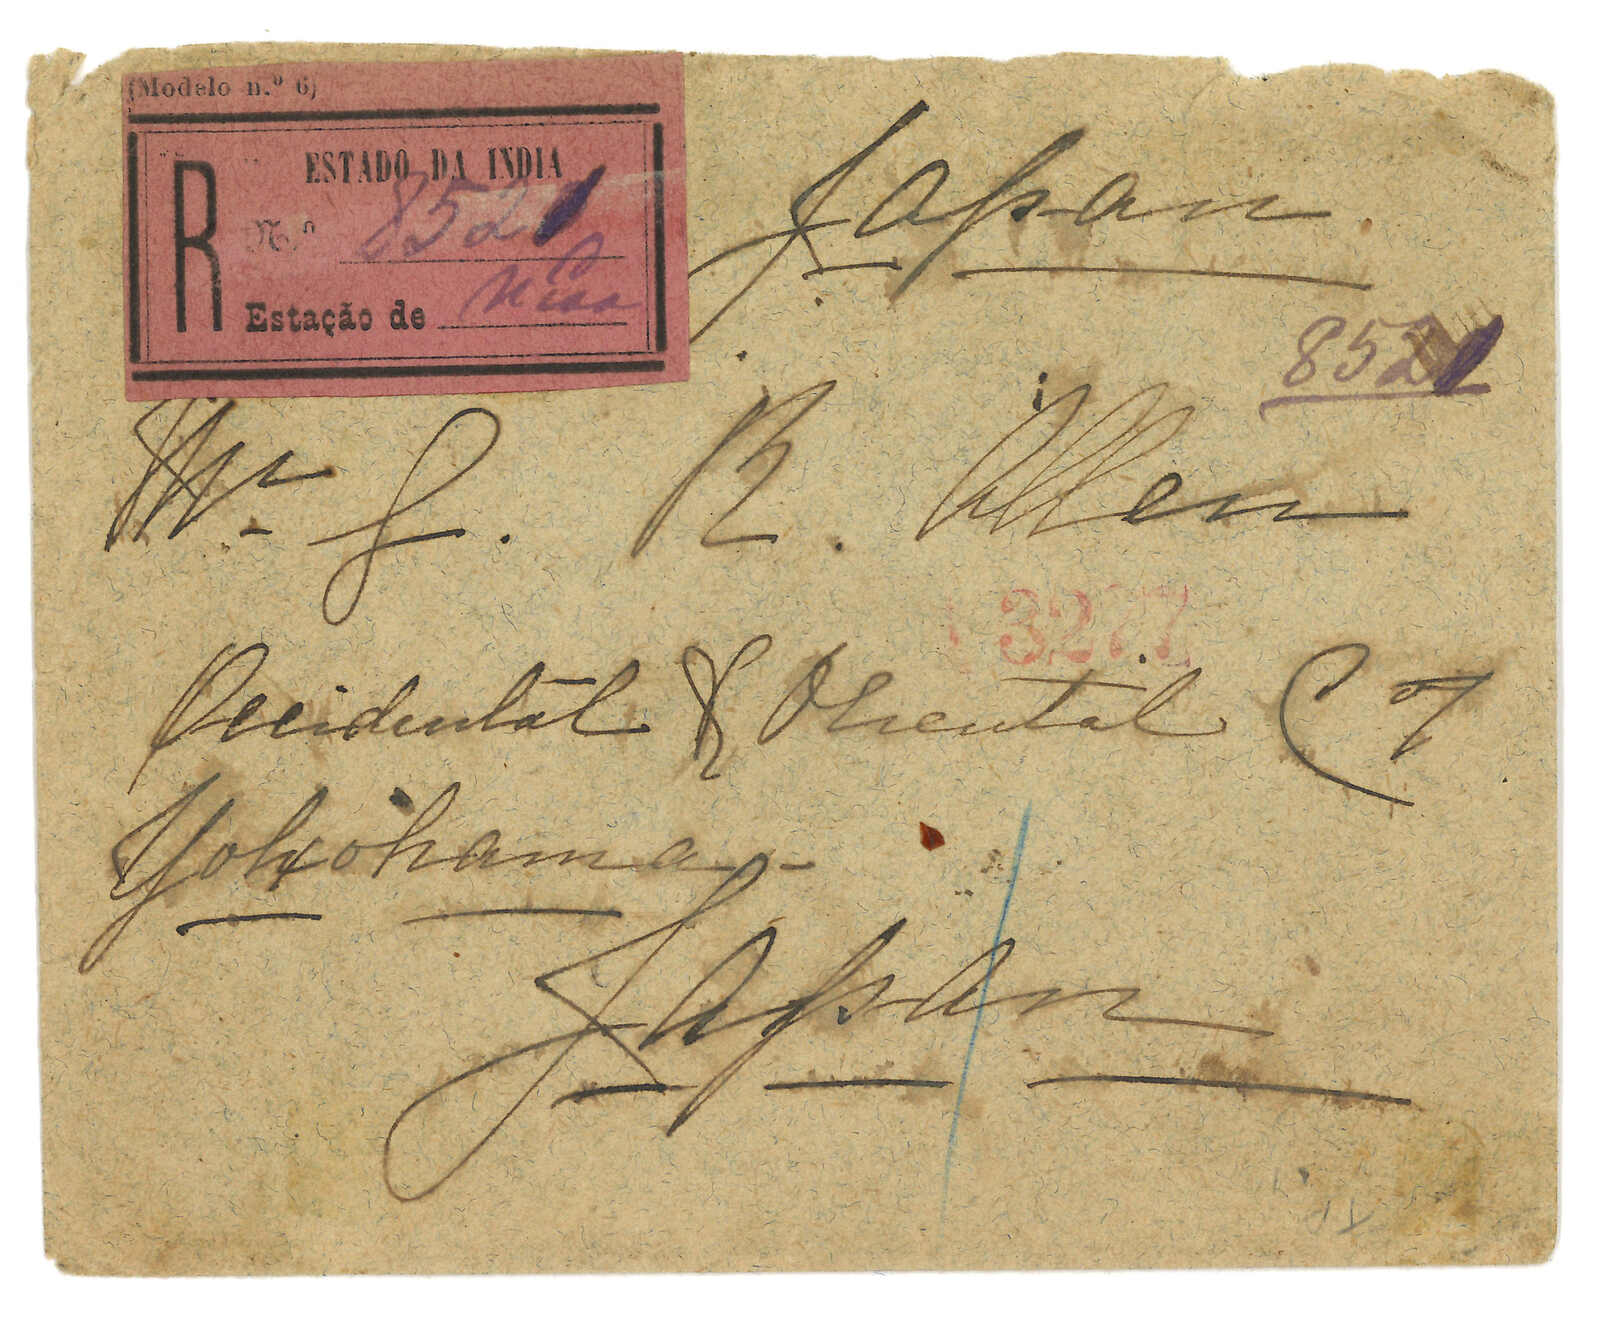 (Modelo n.º 6)
R
ESTADO DA INDIA
N.º 8521
Estação de
Japan
8521
Mr G. R. Allen
3277
Occidental & Oriental Coy
Yokohama
Japan